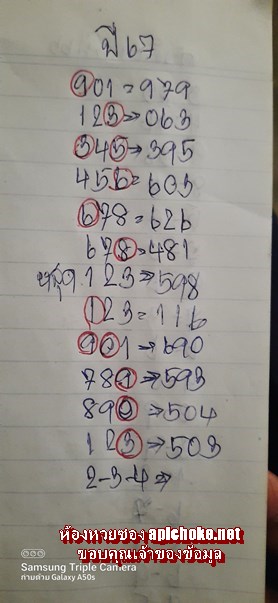 ปี 67
901 = 979
123 → 063
345 → 395
456 = 603
678 = 626
678 → 481
หยุด 123 → 598
123 = 116
901 → 690
789 → 593
890 → 504
123 → 503
2-3-4 →
ห้องหวยซอง apichoke.net
ขอบคุณเจ้าของข้อมูล
Samsung Triple Camera
ถ่ายด้วย Galaxy A50s